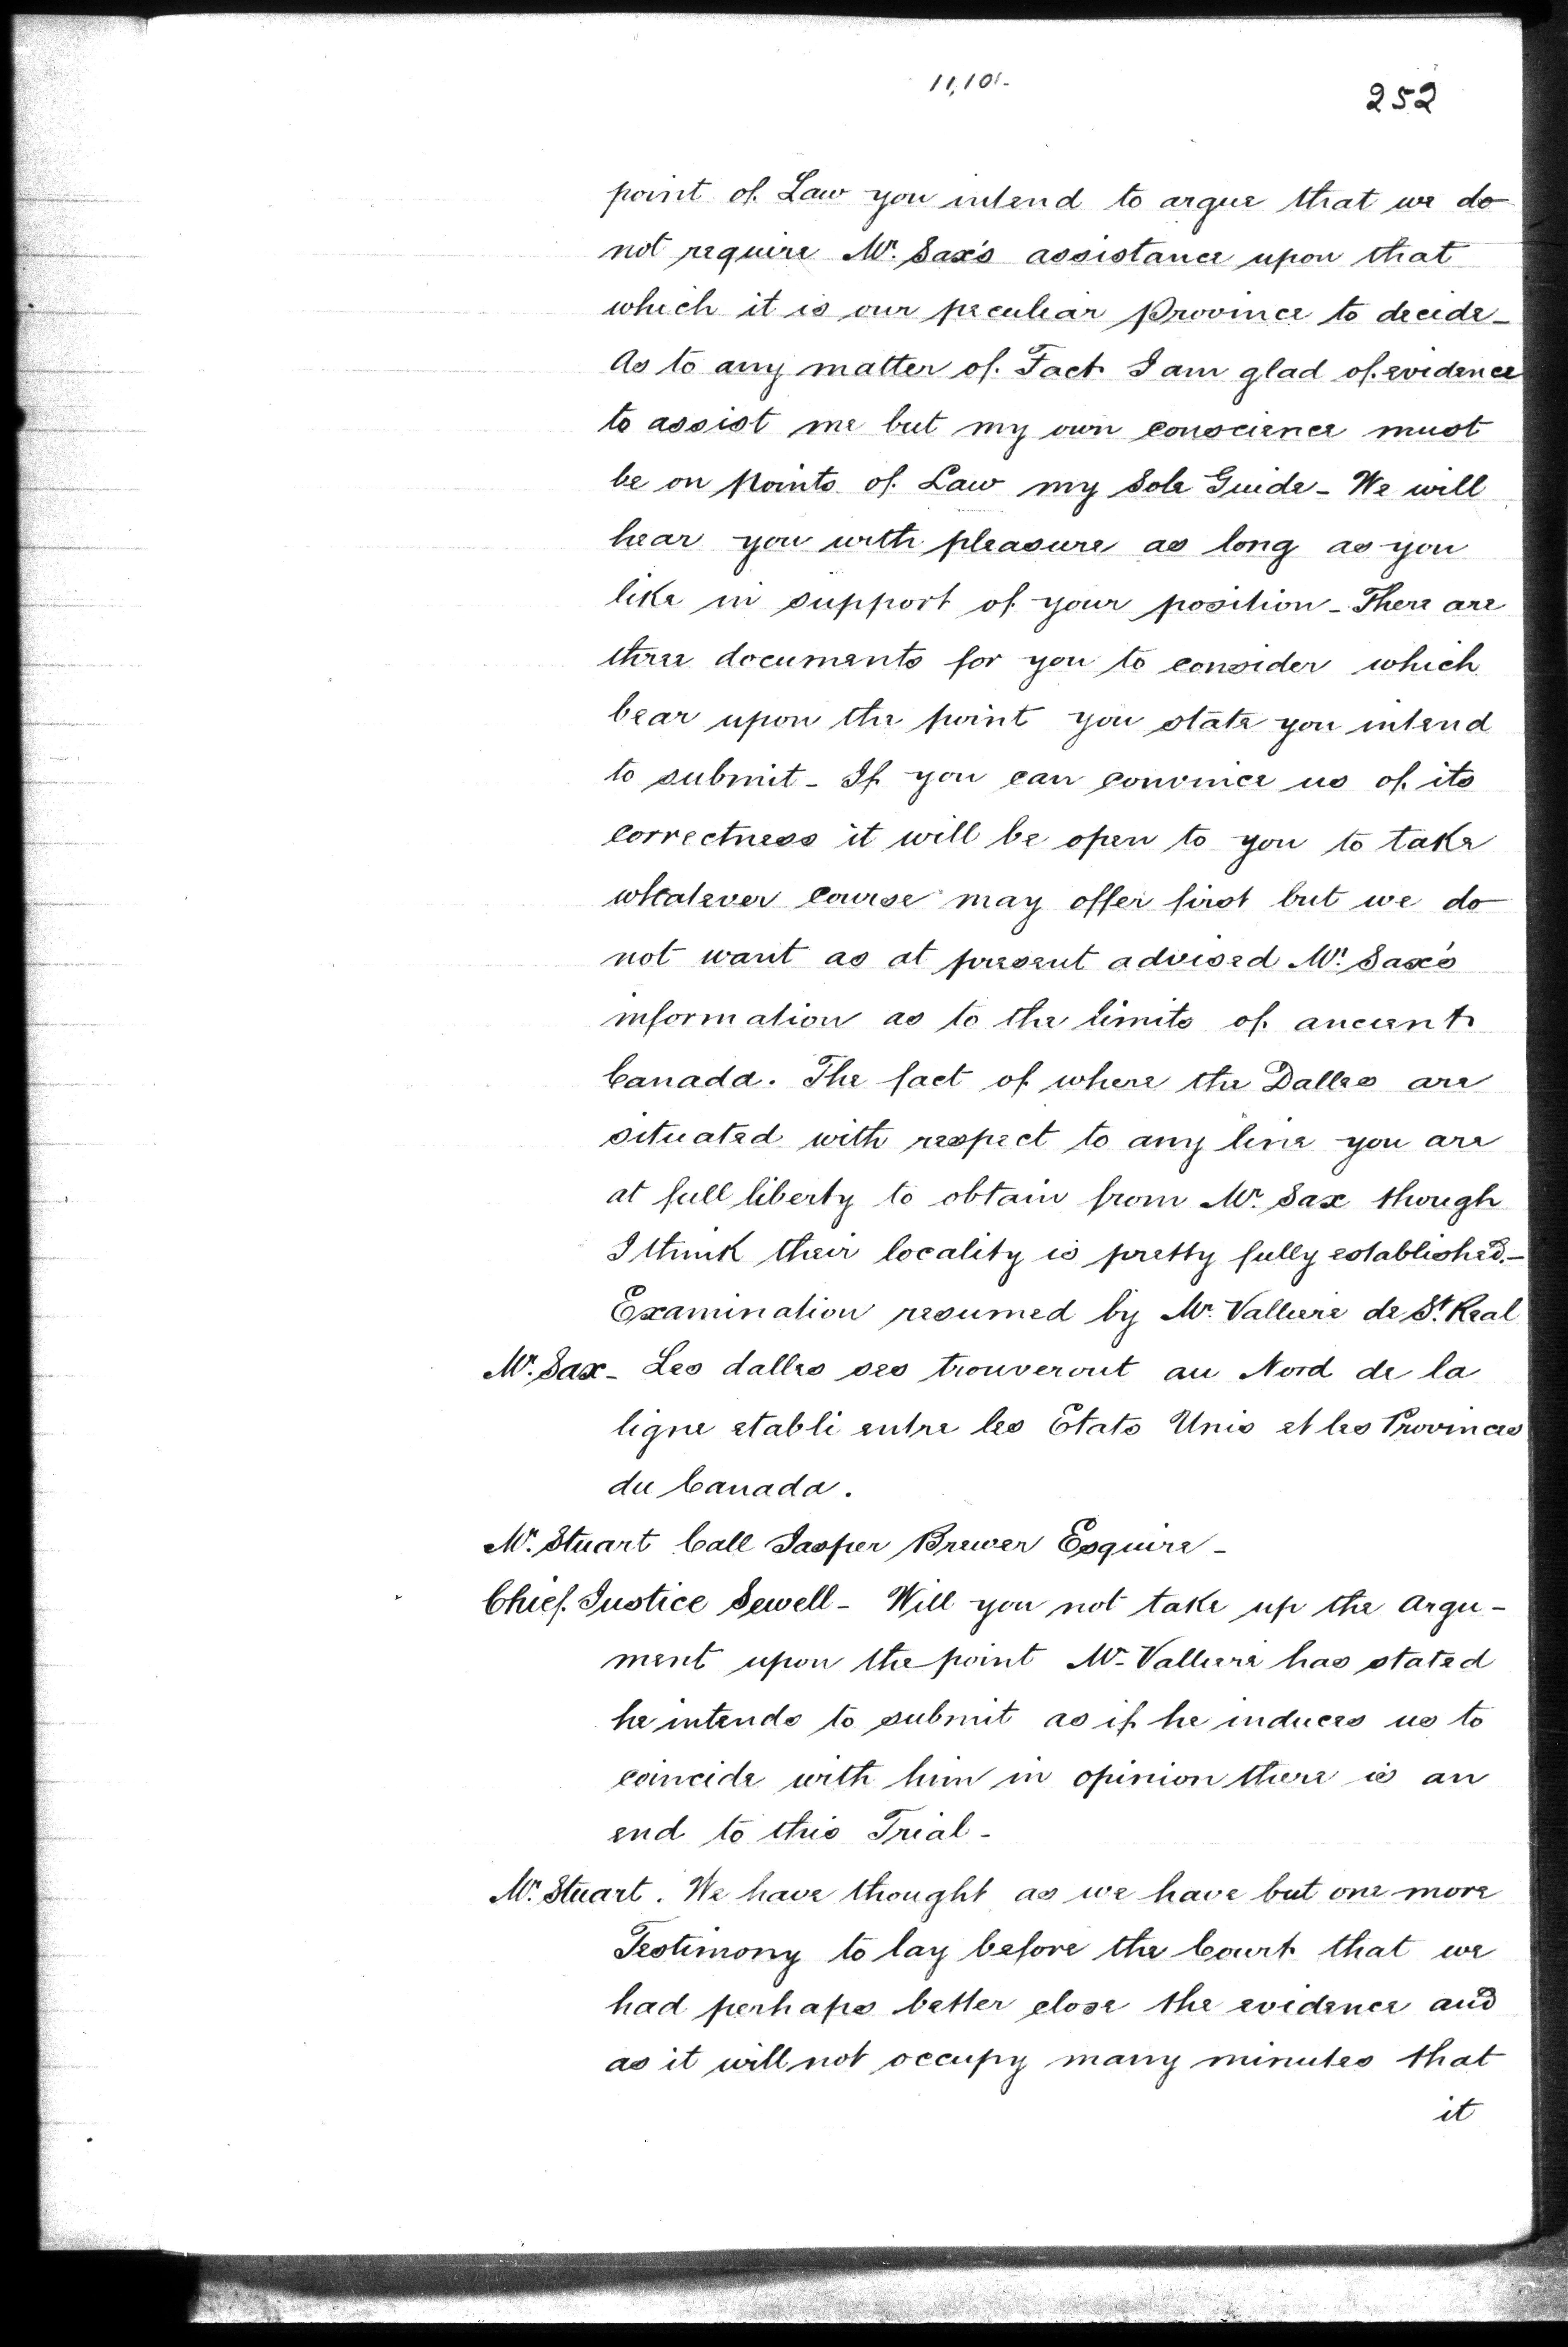 11,101-
252
point of Law you intend to argue that we do
not require Mr. Sax's assistance upon that
which it is our peculiar Province to decide-
As to any matter of Fact I am glad of evidence
to assist me but my own conscience must
be on points of Law my Sole Guide- We will
hear you with pleasure as long as you
like in support of your position- There are
three documents for you to consider which
bear upon the point you state you intend
to submit- If you can convince us of its
correctness it will be open to you to take
whatever course may offer first but we do
not want as at present advised Mr. Sax's
information as to the limits of ancient
Canada. The fact of where the Dalles are
situated with respect to any line you are
at full liberty to obtain from Mr. Sax though
I think their locality is pretty fully established.-
Examination resumed by Mr. Valliere de St. Real
Mr. Sax- Les dalles ses trouveront au Nord de la
ligne etabli entre les Etats Unis et les Provinces
du Canada.
Mr. Stuart Call Jasper Brewer Esquire-
Chief Justice Sewell- Will you not take up the argu-
ment upon the point Mr- Valliere has stated
he intends to submit as if he induces us to
coincide with him in opinion there is an
end to this Trial-
Mr. Stuart. We have thought as we have but one more
Testimony to lay before the Court that we
had perhaps better close the evidence and
as it will not occupy many minutes that
it